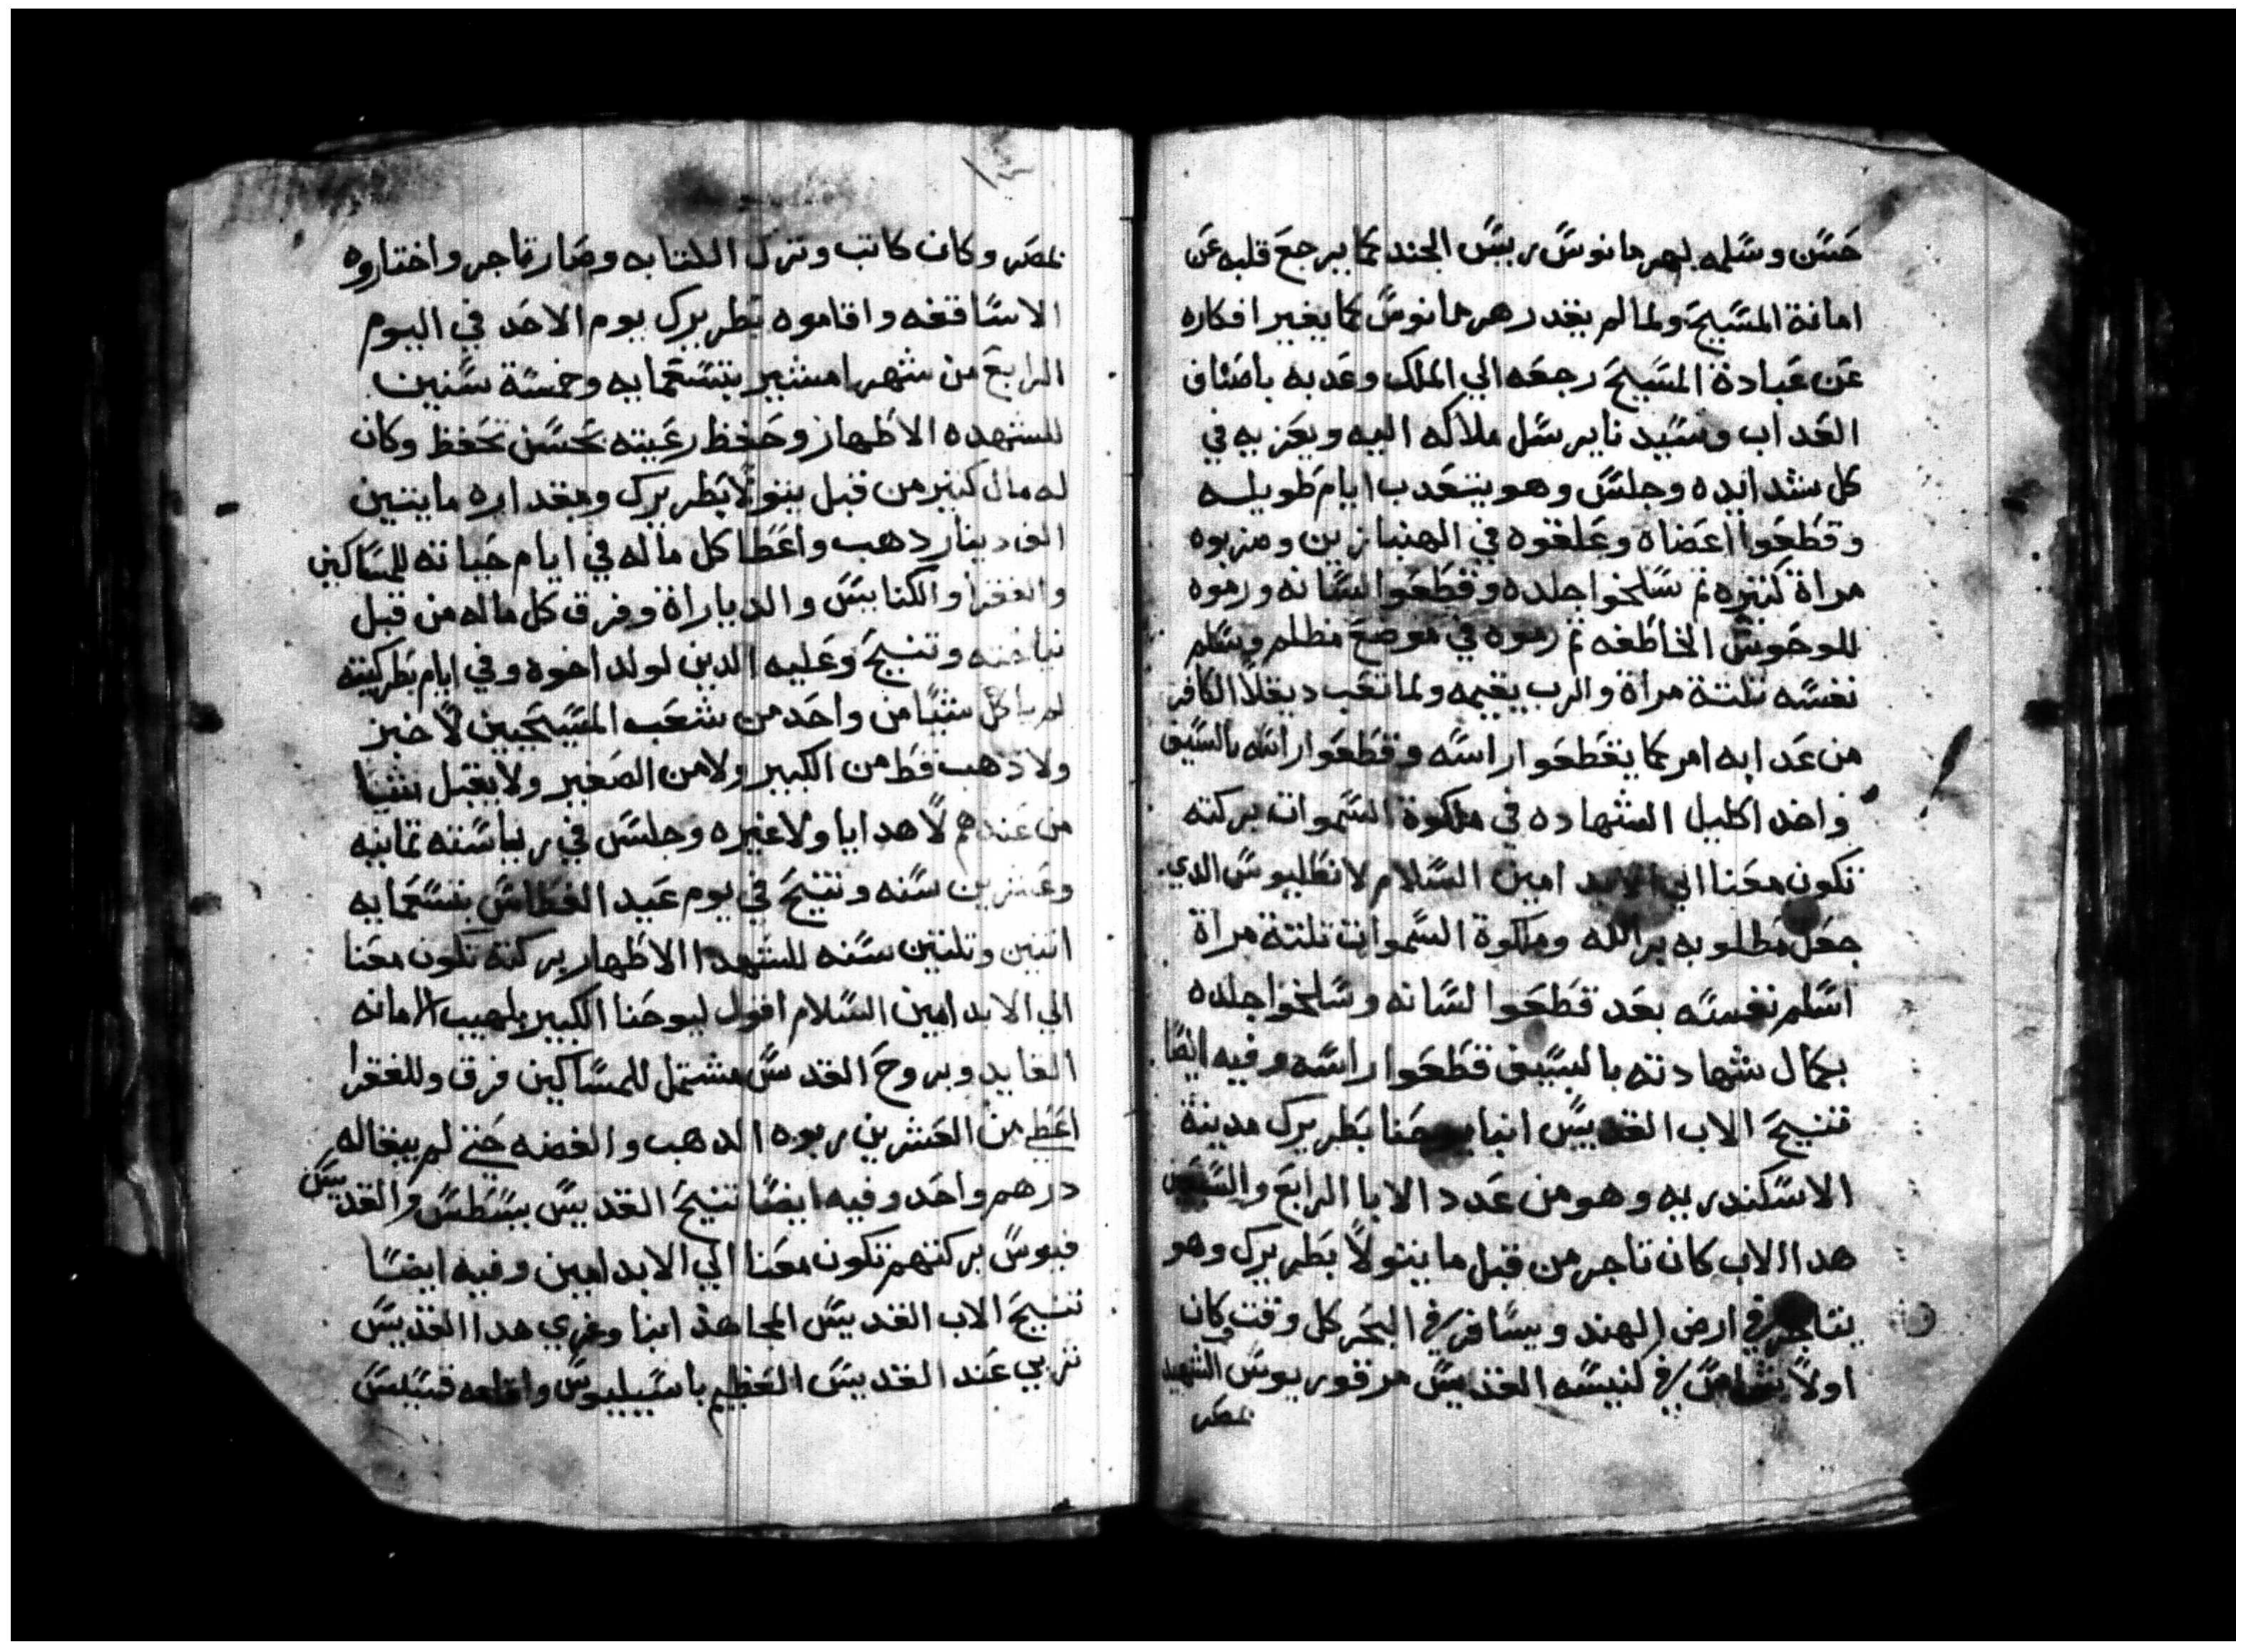 حسن وسلمه لهرمانوس رييس الجند كما يرجع قلبه عن
امانة المسيح ولما لم يقدر هرمانوس كما يغير افكاره
عن عبادة المسيح رجعه الي الملك وعدبه باصناف
العداب وسيدنا يرسل ملاكه اليه ويعزيه في
كل شدايده وجلس وهو يتعدب ايام طويله
وقطعوا اعضاه وعلقوه في الهنبازين وضربوه
مراة كتيره تم سلخوا جلده وقطعوا لسانه ورموه
للوحوش الخاطفه تم رموه في موضع مظلم وسلم
نفسه تلتة مراة والرب يقيمه ولما تعب ديقلا الكافر
من عدابه امر كما يقطعوا راسه وقطعوا راسه بالسيف
واخد اكليل الشهاده في ملكوة السموات بركته
تكون معنا الي الابد امين السلام لانطليوس الدي
جعل مطلوبه بر الله وملكوة السموات تلتة مراة
اسلم نفسه بعد قطعوا لسانه وسلخوا جلده
بكمال شهادته بالسيف قطعوا راسه وفيه ايضا
تنيح الاب القديس انبا يوحنا بطريرك مدينة
الاسكندريه وهو من عدد الابا الرابع والسبعين
هدا الاب كان تاجر من قبل ما يتولا بطريرك وهو
يتاجر في ارض الهند ويسافر في البحر كل وقت وكان
اولا شماس في كنيسه القديس مرقوريوس الشهيد
بمصر
بمصر وكان كاتب وترك الكتابه وصار تاجر واختاروه
الاساقفه واقاموه بطريرك يوم الاحد في اليوم
الرابع من شهر امشير بتسعمايه وخمسة سنين
للشهده الاطهار وحفظ رعيته بحسن تحفظ وكان
له مال كتير من قبل يتولا بطريرك ومقداره مايتين
الف دينار دهب واعطا كل ماله في ايام حياته للمساكين
والفقرا والكنايس والدياراة وفرق كل ماله من قبل
نياحته وتنيح وعليه الدين لولد اخوه وفي ايام بطركيته
لم ياكل شيا من واحد من شعب المسيحيين لا خبز
ولا دهب قط من الكبير ولا من الصغير ولا يقبل شيا
من عندهم لا هدايا ولا غيره وجلس في رياسته تمانيه
وعشرين سنه وتنيح في يوم عيد الغطاس بتسعمايه
اتنين وتلتين سنه للشهدا الاطهار بركته تكون معنا
الي الابد امين السلام اقول ليوحنا الكبير بلهيب الامانه
القايد وبروح القدس مشتمل للمساكين فرق وللفقرا
اعطي من العشرين ربوه الدهب والفضه حتي لم يبقاله
درهم واحد وفيه ايضا تنيح القديس بسطس والقديس
فبوس بركتهم تكون معنا الي الابد امين وفيه ايضا
تنيح الاب القديس المجاهد ابنا وغري هدا القديس
تربي عند القديس العظيم باسيليوس واقامه قسيس